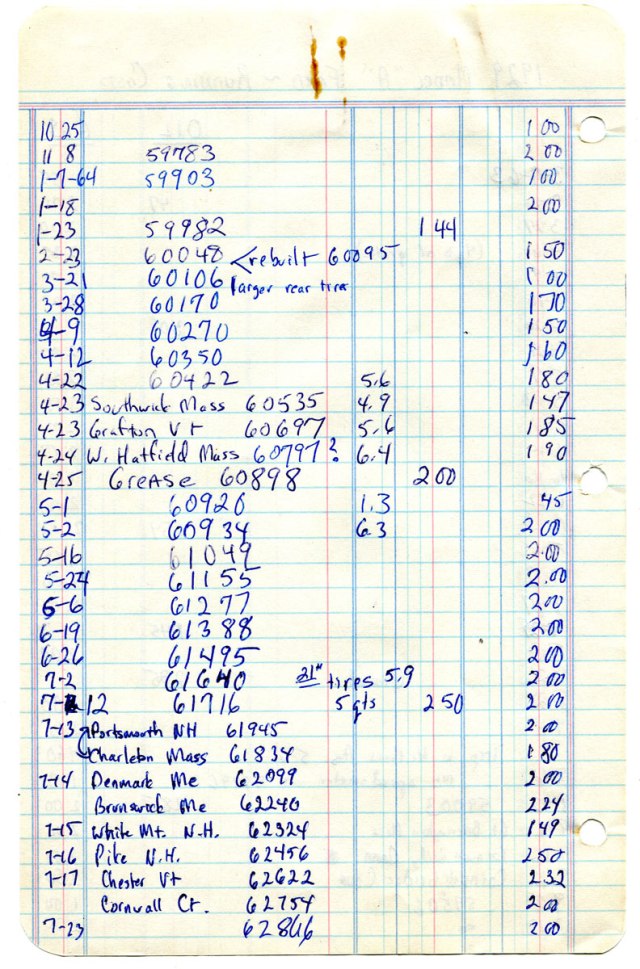 10 25 1 00
11 8 59783 2 00
1-7-64 59903 1 00
1-18 2 00
1-23 59982 1 44
2-23 60048 < rebuilt 60095 1 50
3-21 60106 larger rear tire 1 00
3-28 60170 1 70
4-9 60270 1 50
4-12 60350 1 60
4-22 60422 5.6 1 80
4-23 Southwick Mass 60535 4.9 1 47
4-23 Grafton Vt 60697 5.6 1 85
4-24 W. Hatfield Mass 60797? 6.4 1 90
4-25 Grease 60898 2 00
5-1 60920 1.3 45
5-2 60934 6.3 2 00
5-16 61049 2.00
5-24 61155 2.00
6-6 61277 2 00
6-19 61388 2 00
6-26 61495 2 00
7-2 61640 21" tires 5.9 2 00
7-12 61716 5 qts 2 50 2 00
7-13 Portsmouth NH 61945 2 00
Charleton Mass 61834 1 80
7-14 Denmark Me 62099 2 00
Brunswick Me 62240 2 24
7-15 White Mt. N.H. 62324 1 49
7-16 Pike N.H. 62456 2 50
7-17 Chester Vt 62622 2 32
Cornwall Ct. 62754 2 00
7-23 62866 2 00